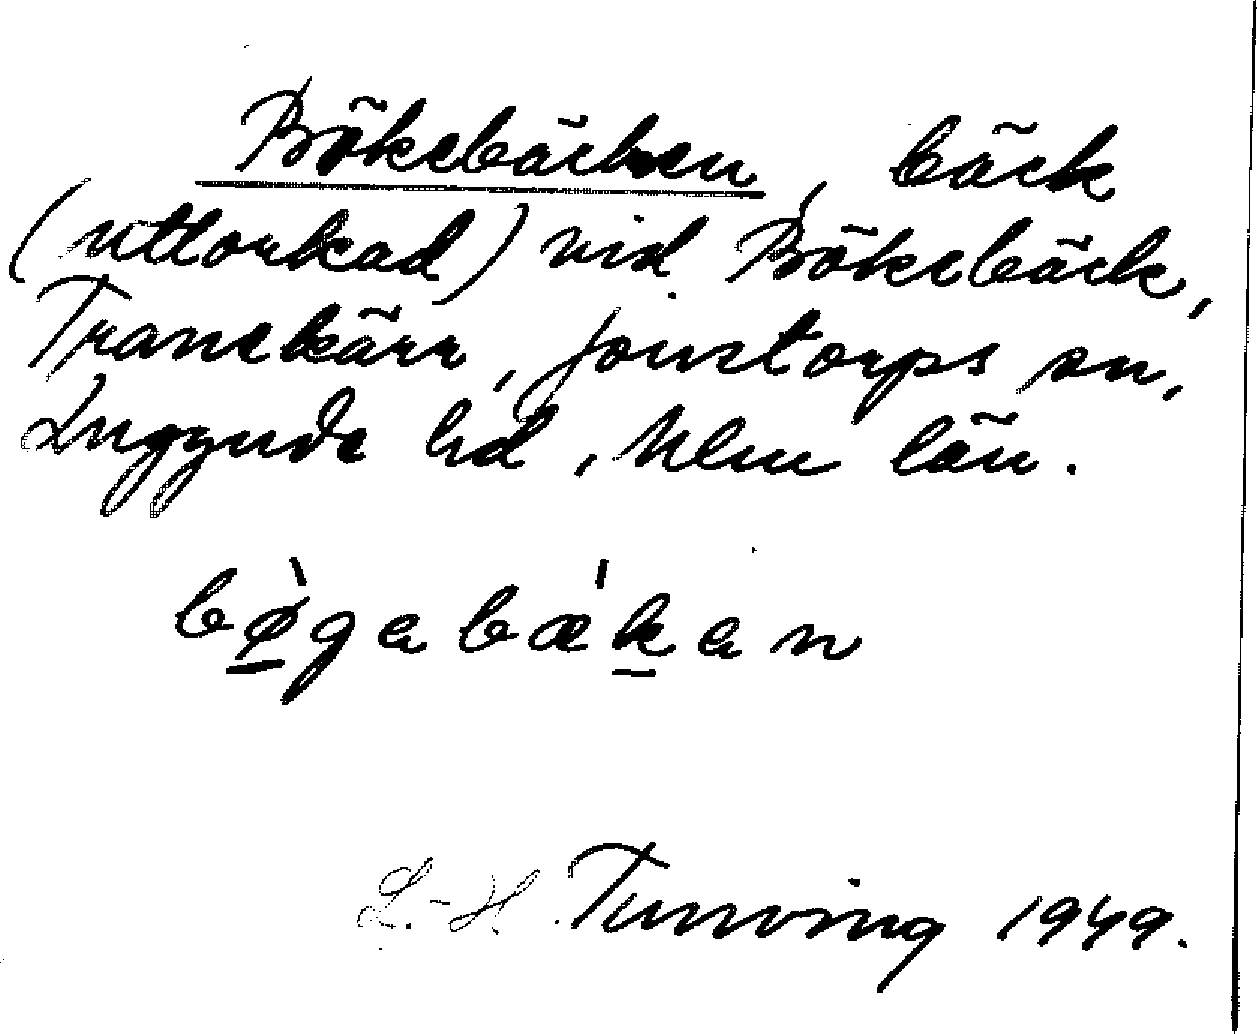 Bökebäcken, bäck
(uttorkad) vid Bökebäck,
Tranekärr, Jonstorps sn,
Luggude hd, Mlm län.
bø̲̀gabæ'k̲an
L.-H. Tunving 1949.